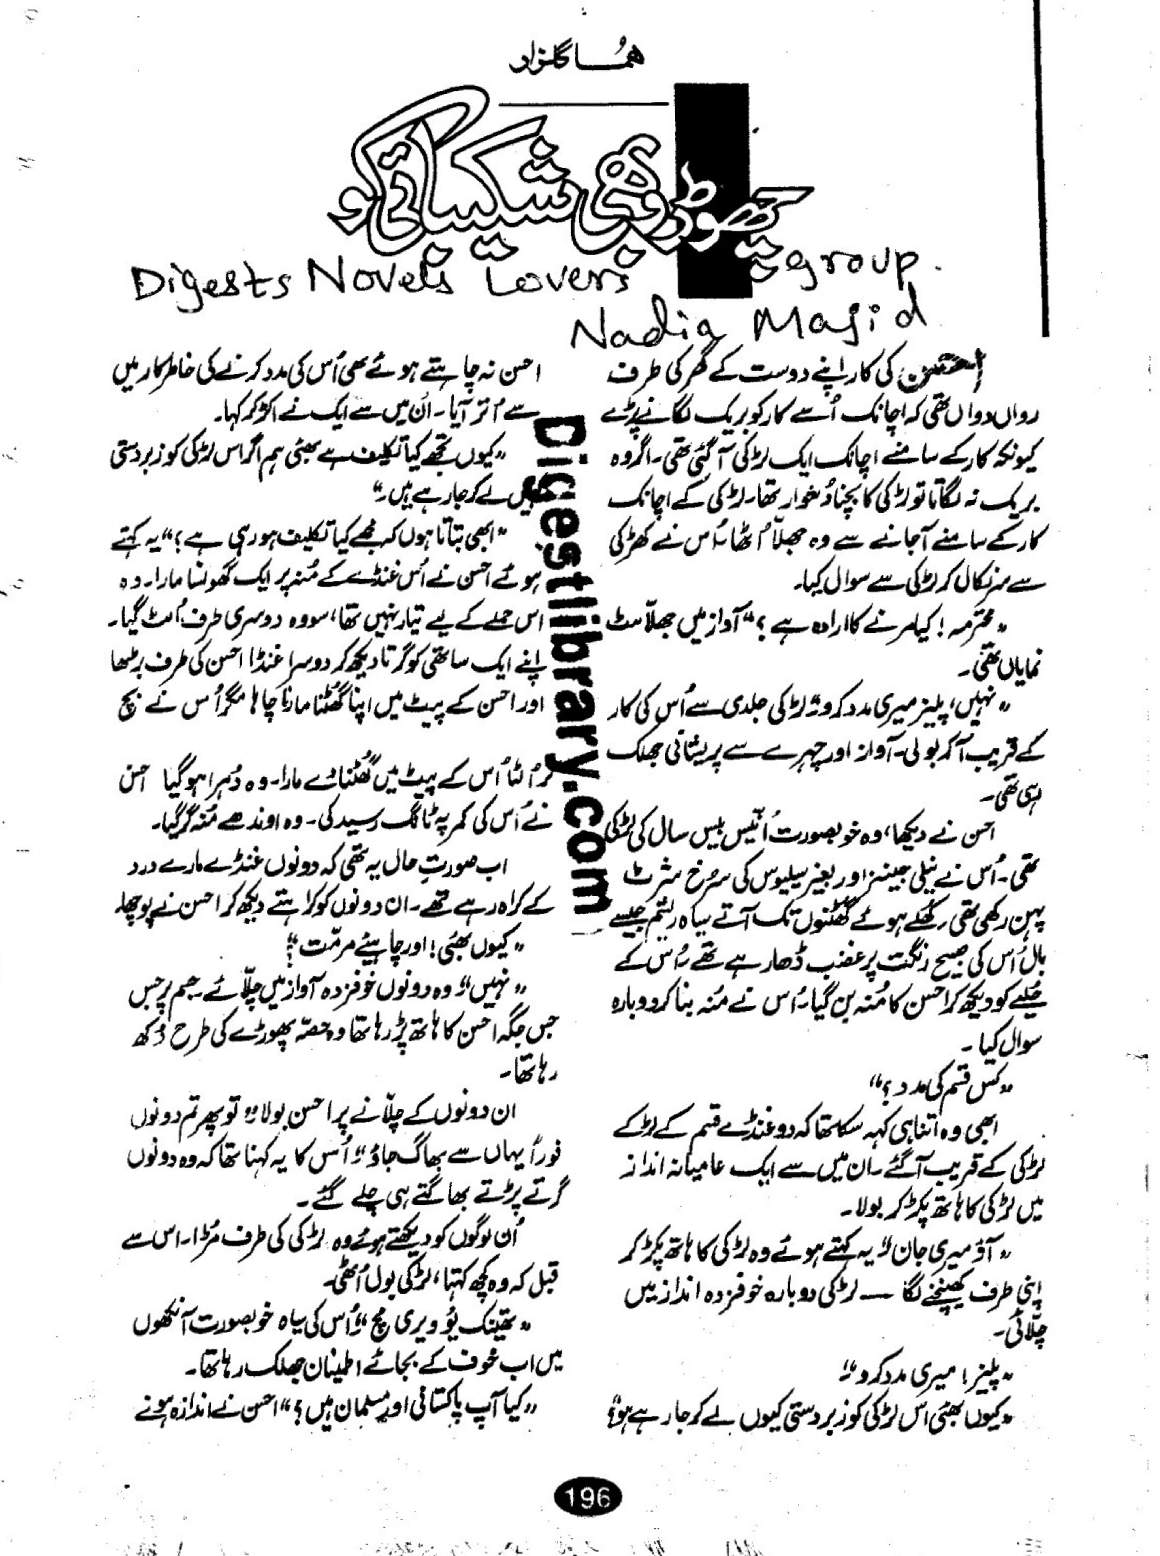 ھما گلزار
چھوڑو بھی شکیبائی کو
Digests Novels Lovers group.
Nadia Majid
احسن کی کار اپنے دوست کے گھر کی طرف
رواں دواں تھی کہ اچانک اُسے کار کو بریک لگانے پڑے
کیونکہ کار کے سامنے اچانک ایک لڑکی آ گئی تھی۔ اگر وہ
بریک نہ لگاتا تو لڑکی کا بچنا دُشوار تھا۔ لڑکی کے اچانک
کار کے سامنے آ جانے سے وہ جھلّا اُٹھا۔ اُس نے کھڑکی
سے سر نکال کر لڑکی سے سوال کیا۔
”محترمہ! کیا مرنے کا ارادہ ہے؟“ آواز میں جھلّاہٹ
نمایاں تھی۔
”نہیں، پلیز میری مدد کرو“ لڑکی جلدی سے اُس کی کار
کے قریب آ کر بولی۔ آواز اور چہرے سے پریشانی جھلک
رہی تھی۔
احسن نے دیکھا، وہ خوبصورت اُنیّس بیس سال کی لڑکی
تھی۔ اُس نے نیلی جینز اور بغیر سلیوس کی سُرخ شرٹ
پہن رکھی تھی۔ کُھلے ہوئے گھٹنوں تک آتے سیاہ ریشم جیسے
بال اُس کی صبیح رنگت پر غضب ڈھا رہے تھے۔ اُس کے
حُلیے کو دیکھ کر احسن کا مُنہ بن گیا۔ اُس نے مُنہ بنا کر دوبارہ
سوال کیا۔
”کس قسم کی مدد؟“
ابھی وہ اتنا ہی کہہ سکا تھا کہ دو غنڈے قسم کے لڑکے
لڑکی کے قریب آ گئے۔ ان میں سے ایک عامیانہ انداز
میں لڑکی کا ہاتھ پکڑ کر بولا۔
”آؤ میری جان“ یہ کہتے ہوئے وہ لڑکی کا ہاتھ پکڑ کر
اپنی طرف کھینچنے لگا — لڑکی دوبارہ خوفزدہ انداز میں
چلّائی۔
”پلیز! میری مدد کرو“
”کیوں بھئی اس لڑکی کو زبردستی کیوں لے کر جا رہے ہو؟“
احسن نہ چاہتے ہوئے بھی اُس کی مدد کرنے کی خاطر کار میں
سے اُتر آیا۔ اُن میں سے ایک نے اکڑ کر کہا۔
”کیوں تجھے کیا تکلیف ہے بھئی ہم اگر اس لڑکی کو زبردستی
کہیں لے کر جا رہے ہیں۔“
”ابھی بتاتا ہوں کہ مجھے کیا تکلیف ہو رہی ہے؟“ یہ کہتے
ہوئے احسن نے اُس غنڈے کے مُنہ پر ایک گھونسا مارا۔ وہ
اس حملے کے لیے تیار نہیں تھا، سو وہ دوسری طرف اُلٹ گیا۔
اپنے ایک ساتھی کو گرتا دیکھ کر دوسرا غنڈا احسن کی طرف بڑھا
اور احسن کے پیٹ میں اپنا گھُٹنا مارنا چاہا مگر اُس نے بچ
کر اُلٹا اُس کے پیٹ میں گھُٹنا دے مارا۔ وہ دُہرا ہو گیا احسن
نے اُس کی کمر پہ ٹانگ رسید کی۔ وہ اوندھے مُنہ گر گیا۔
اب صورتِ حال یہ تھی کہ دونوں غنڈے مارے درد
کے کراہ رہے تھے۔ ان دونوں کو کراہتے دیکھ کر احسن نے پوچھا۔
”کیوں بھئی! اور چاہیئے مرمّت؟“
”نہیں“ وہ دونوں خوفزدہ آواز میں چلّائے۔ جسم پر جس
جس جگہ احسن کا ہاتھ پڑ رہا تھا وہ حصّہ پھوڑے کی طرح دُکھ
رہا تھا۔
ان دونوں کے چلّانے پر احسن بولا ”تو پھر تم دونوں
فوراً یہاں سے بھاگ جاؤ“ اُس کا یہ کہنا تھا کہ وہ دونوں
گرتے پڑتے بھاگتے ہی چلے گئے۔
اُن لوگوں کو دیکھتے ہوئے وہ لڑکی کی طرف مُڑا۔ اس سے
قبل کہ وہ کچھ کہتا، لڑکی بول اُٹھی۔
”تھینک یُو ویری مچ“ اُس کی سیاہ خوبصورت آنکھوں
میں اب خوف کے بجائے اطمینان جھلک رہا تھا۔
”کیا آپ پاکستانی اور مسلمان ہیں؟“ احسن نے اندازہ ہونے
Digestlibrary.com
196